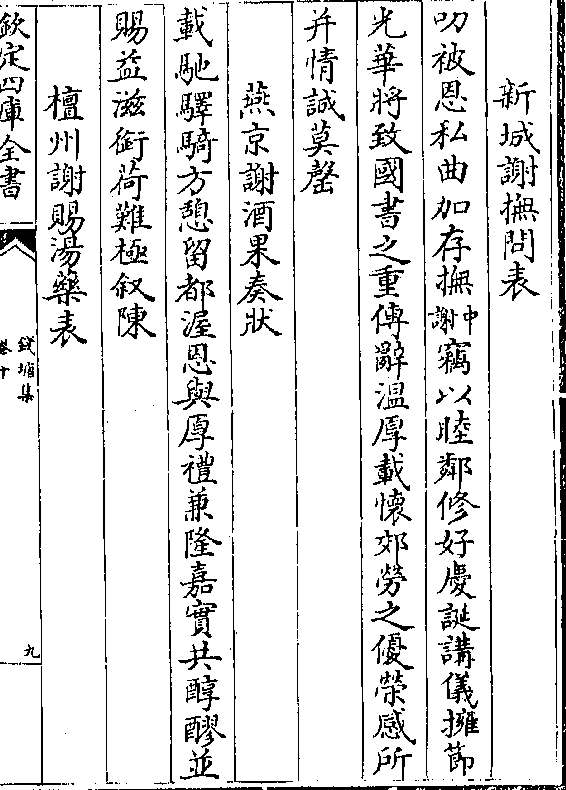 新城謝撫問表
叨被恩私曲加存撫中謝竊以睦鄰修好慶誕講儀擁節
光華將致國書之重傳辭温厚載懷郊勞之優榮感所
并情誠莫罄
燕京謝酒果奏狀
載馳驛騎方憩留都渥恩與厚禮兼隆嘉實共醇醪並
賜益滋銜荷難極叙陳
檀州謝賜湯藥表
欽定四庫全書
錢塘集
卷十
九